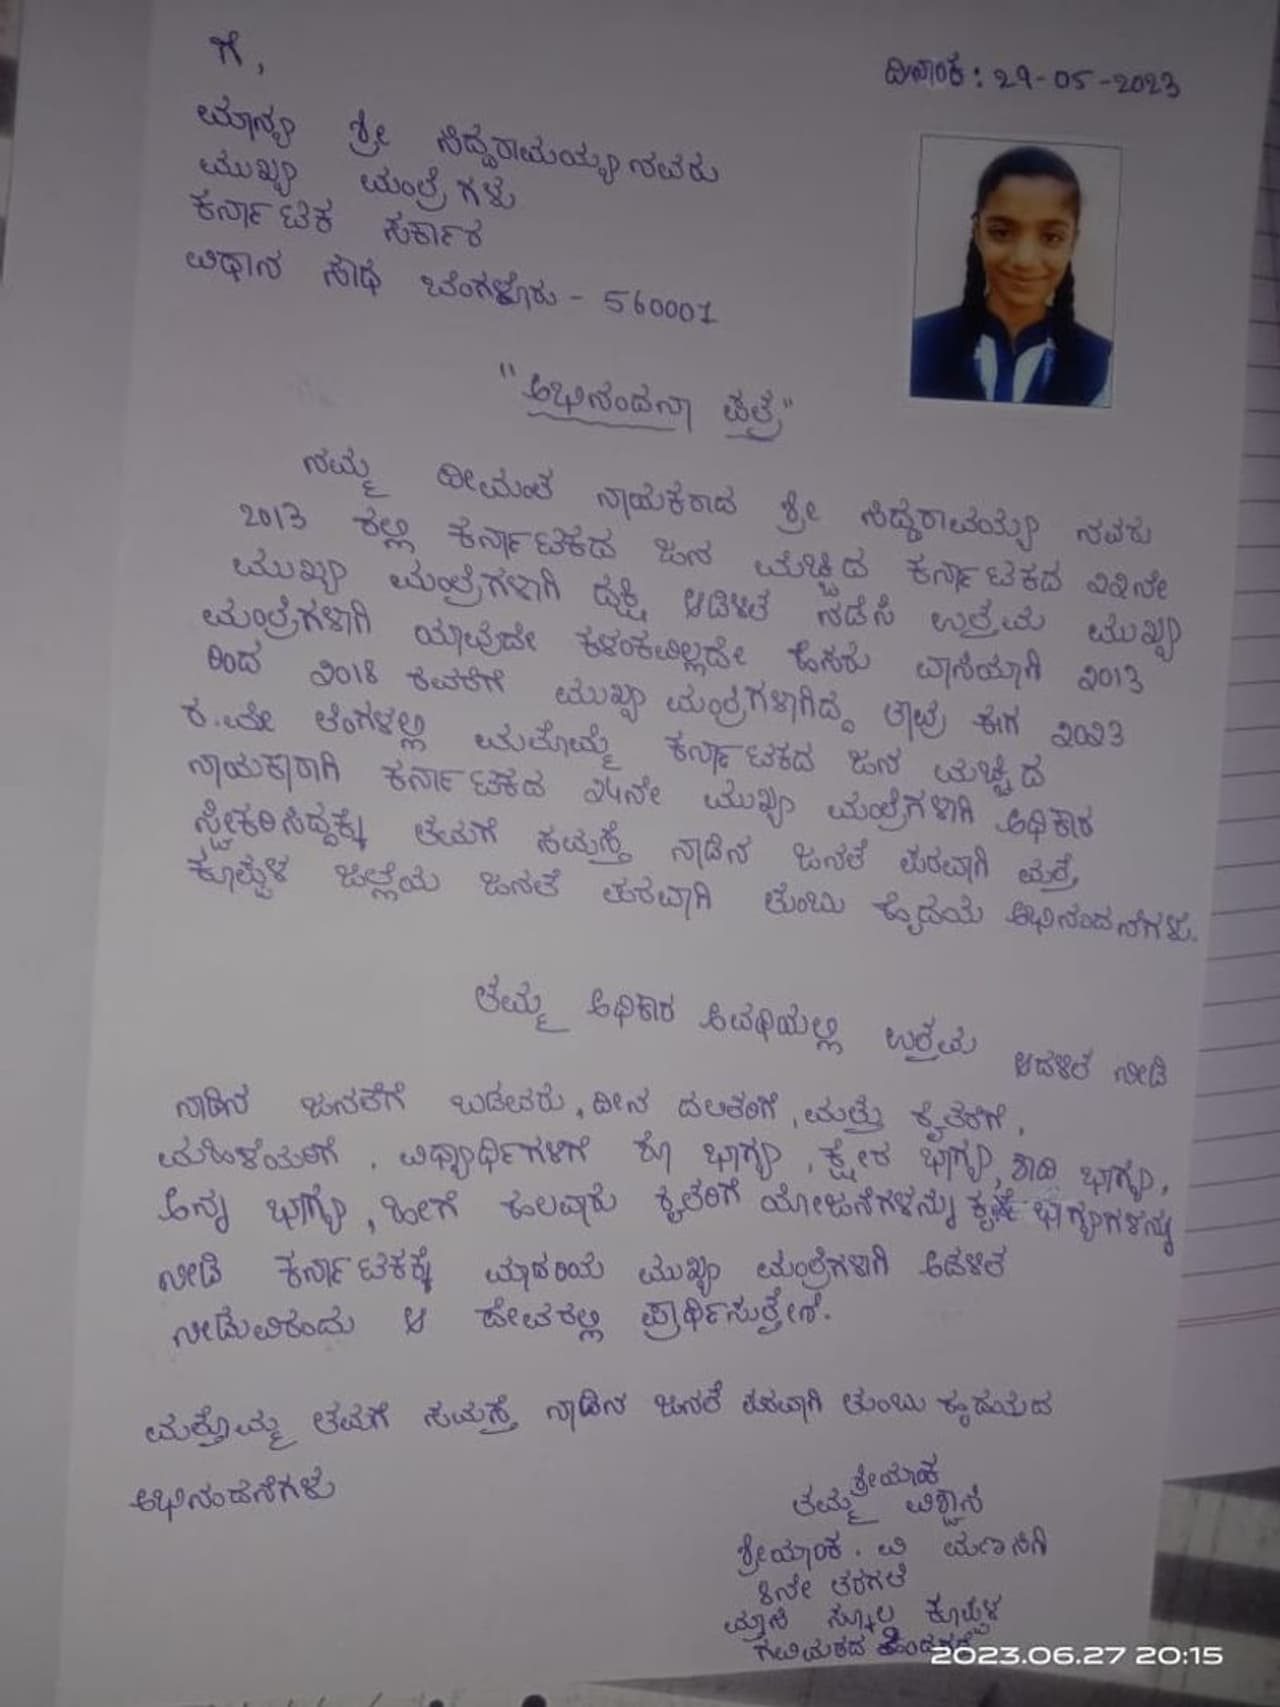 ಗೆ,
ದಿನಾಂಕ: 29-05-2023
ಮಾನ್ಯ ಶ್ರೀ ಸಿದ್ದರಾಮಯ್ಯನವರು
ಮುಖ್ಯ ಮಂತ್ರಿಗಳು
ಕರ್ನಾಟಕ ಸರ್ಕಾರ
ವಿಧಾನ ಸೌಧ ಬೆಂಗಳೂರು - 560001
"ಅಭಿನಂದನಾ ಪತ್ರ"
ನಮ್ಮ ಧೀಮಂತ ನಾಯಕರಾದ ಶ್ರೀ ಸಿದ್ದರಾಮಯ್ಯ ನವರು
2013 ರಲ್ಲಿ ಕರ್ನಾಟಕದ ಜನ ಮೆಚ್ಚಿದ ಕರ್ನಾಟಕದ ೨೨ನೇ
ಮುಖ್ಯ ಮಂತ್ರಿಗಳಾಗಿ ದಕ್ಷ ಆಡಳಿತ ನಡೆಸಿ ಉತ್ತಮ ಮುಖ್ಯ
ಮಂತ್ರಿಗಳಾಗಿ ಯಾವುದೇ ಕಳಂಕವಿಲ್ಲದೇ ಹೆಸರು ವಾಸಿಯಾಗಿ 2013
ರಿಂದ 2018 ರವರೆಗೆ ಮುಖ್ಯ ಮಂತ್ರಿಗಳಾಗಿದ್ದ ತಾವು ಈಗ 2023
ರ.ಮೇ ತಿಂಗಳಲ್ಲಿ ಮತ್ತೊಮ್ಮೆ ಕರ್ನಾಟಕದ ಜನ ಮೆಚ್ಚಿದ
ನಾಯಕಾರಾಗಿ ಕರ್ನಾಟಕದ ೨೪ನೇ ಮುಖ್ಯ ಮಂತ್ರಿಗಳಾಗಿ ಅಧಿಕಾರ
ಸ್ವೀಕರಿಸಿದ್ದಕ್ಕೆ ತಮಗೆ ಸಮಸ್ತ ನಾಡಿನ ಜನತೆ ಪರವಾಗಿ ಮತ್ತು
ಕೊಪ್ಪಳ ಜಿಲ್ಲೆಯ ಜನತೆ ಪರವಾಗಿ ತುಂಬು ಹೃದಯ ಅಭಿನಂದನೆಗಳು.
ತಮ್ಮ ಅಧಿಕಾರ ಅವಧಿಯಲ್ಲಿ ಉತ್ತಮ ಆಡಳಿತ ನೀಡಿ
ನಾಡಿನ ಜನತೆಗೆ ಬಡವರು, ದೀನ ದಲಿತರಿಗೆ, ಮತ್ತು ರೈತರಿಗೆ,
ಮಹಿಳೆಯರಿಗೆ, ವಿದ್ಯಾರ್ಥಿಗಳಿಗೆ ಶೂ ಭಾಗ್ಯ, ಕ್ಷೀರ ಭಾಗ್ಯ, ಶಾದಿ ಭಾಗ್ಯ,
ಅನ್ನ ಭಾಗ್ಯ, ಹೀಗೆ ಹಲವಾರು ರೈತರಿಗೆ ಯೋಜನೆಗಳನ್ನು ಕೃಷಿ ಭಾಗ್ಯಗಳನ್ನು
ನೀಡಿ ಕರ್ನಾಟಕಕ್ಕೆ ಮಾದರಿಯ ಮುಖ್ಯ ಮಂತ್ರಿಗಳಾಗಿ ಆಡಳಿತ
ನೀಡುವಿರೆಂದು ಆ ದೇವರಲ್ಲಿ ಪ್ರಾರ್ಥಿಸುತ್ತೇನೆ.
ಮತ್ತೊಮ್ಮೆ ತಮಗೆ ಸಮಸ್ತ ನಾಡಿನ ಜನತೆ ಪರವಾಗಿ ತುಂಬು ಹೃದಯದ
ಅಭಿನಂದನೆಗಳು
ಶ್ರೇಯಾಂಕ
ತಮ್ಮ ವಿಶ್ವಾಸಿ
ಶ್ರೇಯಾಂಕ. ವಿ
8ನೇ ತರಗತಿ
ಸ್ಕೂಲ ಕೊಪ್ಪಳ
ಗವಿಮಠದ
2023.06.27 20:15